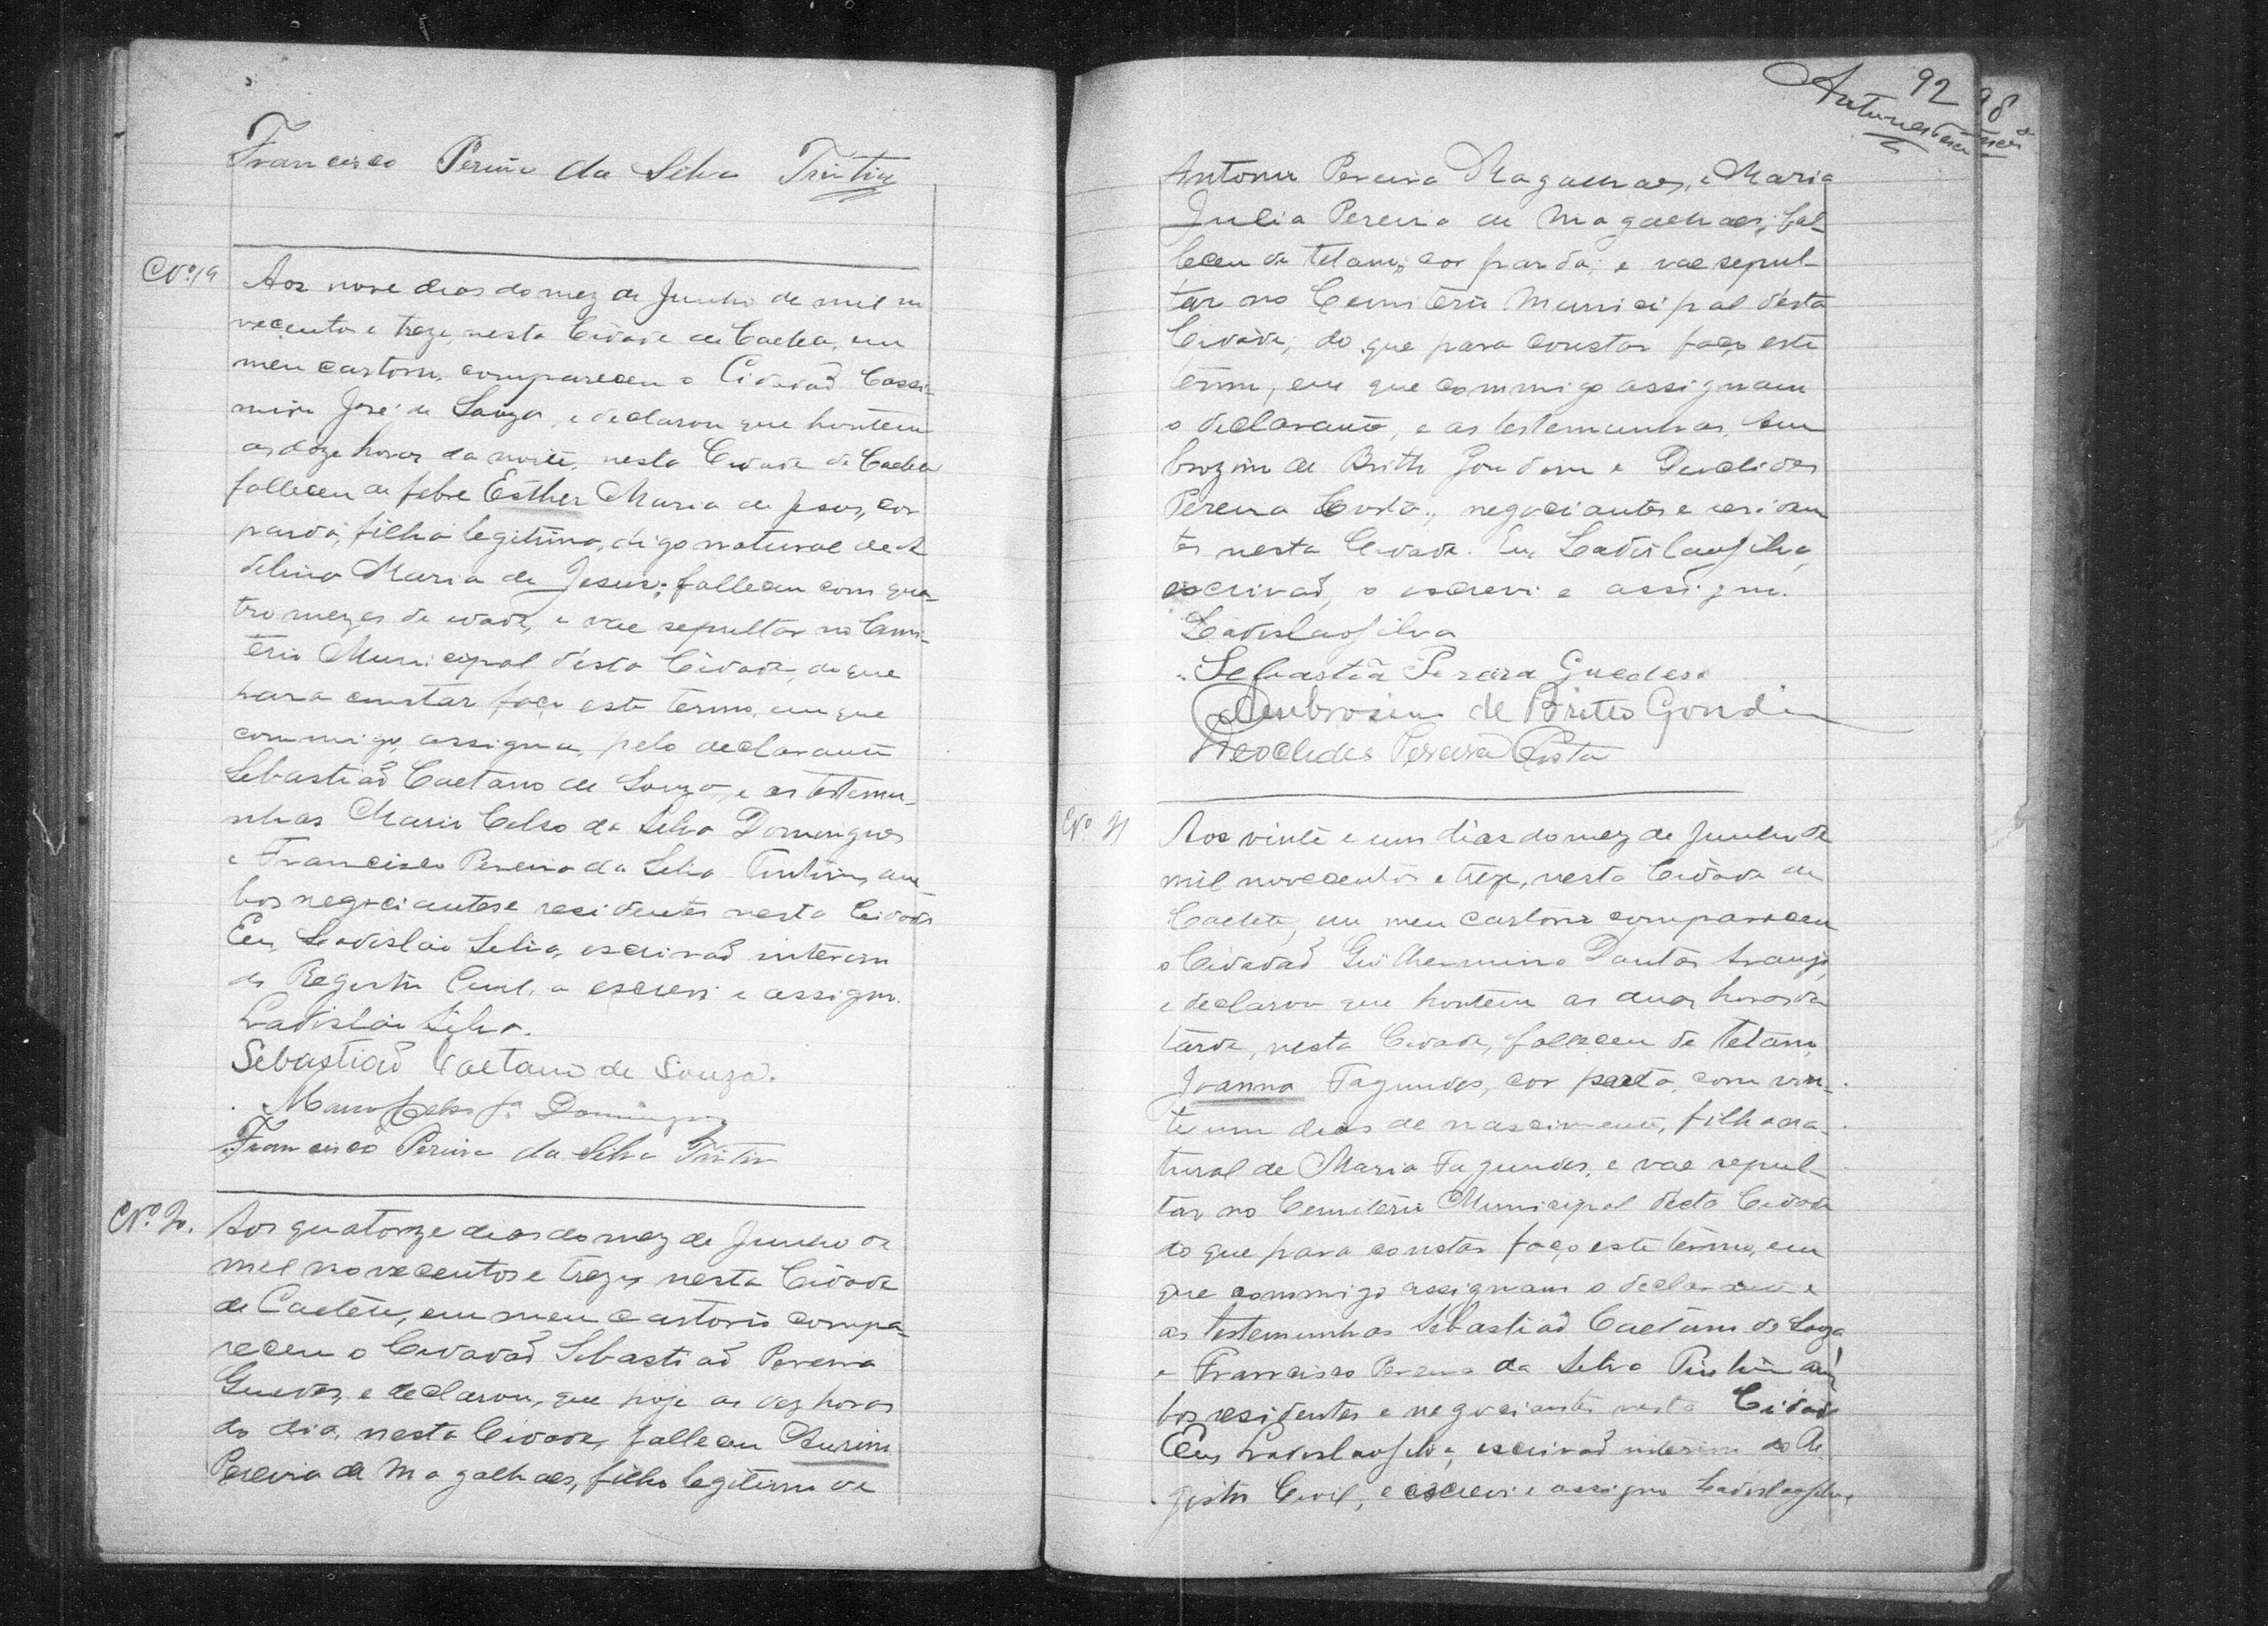 Francisco Pereira da Silva Tintin
Nº 19
Aos nove dias do mez de Junho de mil no
vecentos e treze, nesta Cidade de Caeteé, em
meu cartorio, compareceu o Cidadaõ Cassi-
miro José de Souza, e declarou que hontem
as doze horas da noite, nesta Cidade de Caeteé
falleceu de febre Esther Maria de Jesus, cor
parda, filha legitima, digo natural de A
delina Maria de Jesus; falleceu com qua-
tro mezes de idade, e vae sepultar no Cemi-
terio Municipal d'esta Cidade, do que
para constar faço este termo, em que
commigo assigna, pelo declarante
Sebastiaõ Caetano de Souza, e as testemu-
nhas Mario Celso da Silva Domingues
e Francisco Pereira da Silva Tintin, am-
bos negociantes e residentes nesta Cidade
Eu, Ladislaio Silva, escrivaõ interino
do Registro Civil, o escrevi e assigno.
Ladislaio Silva.
Sebastiaõ Caetano de Souza.
Mario Celso Sª Domingues
Francisco Pereira da Silva Tintin
Nº 20.
Aos quatorze dias do mez de Junho de
mil novecentos e treze, nesta Cidade
de Caeteé, em meu cartorio compa-
receu o Cidadaõ Sebastiaõ Pereira
Guedes, e declarou, que hoje as dez horas
do dia, nesta Cidade, falleceu
Pereira de Magalhaes, filho legitimo de
92 98
Antunes
Antonio Pereira Magalhaes, e Maria
Julia Pereira de Magalhaes; fal-
leceu de tetano; cor parda; e vae sepul-
tar no Cemiterio Municipal d'esta
Cidade; do que para constar faço este
termo, em que commigo assignam
o declarante, e as testemunhas, Am
brozino de Britto Gondim e Deoclides
Pereira Costa, negociantes e residen
tes nesta Cidade. Eu Ladislao Silva,
escrivaõ, o escrevi e assigno.
Ladislao Silva
Sebastiã Pereira Guedes
Ambrosino de Britto Gondim
Deoclides Pereira Costa
Nº 21
Aos vinte e um dias do mez de Junho de
mil novecentos e treze, nesta Cidade de
Caeteé, em meu cartorio compareceu
o Cidadaõ Guilhermino Dantas Araujo,
e declarou que hontem as duas horas da
tarde, nesta Cidade, falleceu de tetano,
Joanna Fagundes, cor preta, com vin-
te um dias de nascimento, filha na-
tural de Maria Fagundes, e vae sepul-
tar no Cemiterio Municipal desta Cidade
do que para constar faço este termo, em
que commigo assignam o declarante e
as testemunhas Sebastiaõ Caetano de Souza
e Francisco Pereira da Silva Tintin am
bos residentes e negociantes nesta Cidade
Eu, Ladislao Silva, escrivaõ interino do Re
gistro Civil, o escrevi e assigno Ladislao Silva